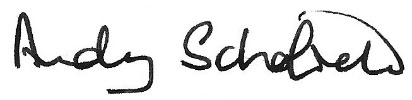 Andy Schofield